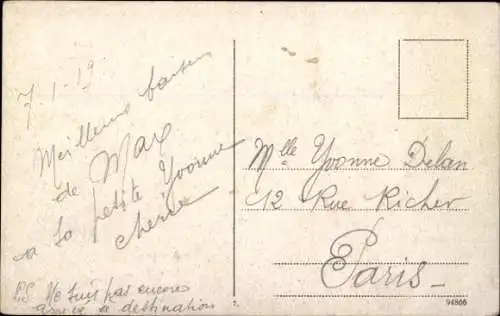 7-1-19
Meilleurs baisers
de Max
à sa petite Yvonne
chérie
P.S. Ne suis pas encore
arrivé à destination
Mlle Yvonne Delan
12 Rue Richer
Paris-
94866